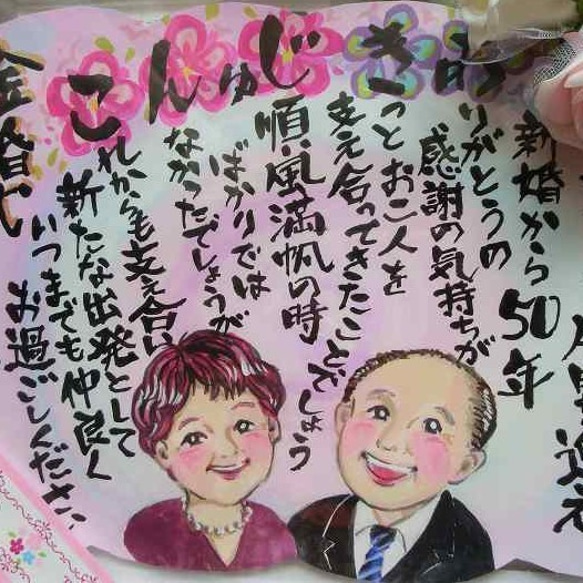 こんゅじ
き
新婚から50年
りがとうの
感謝の気持ちが
っとお二人を
支え合ってきたことでしょう
順風満帆の時
ばかりでは
なかったでしょうが
れからも支え合い
新たな出発として
いつまでも仲良く
お過ごしください
金婚式